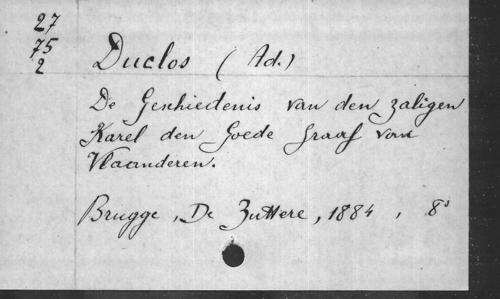 27
75
2
Duclos (Ad.)
De Geschiedenis van den zaligen
Karel den Goede Graaf van
Vlaanderen.
Brugge, De Zuttere, 1884, 8º